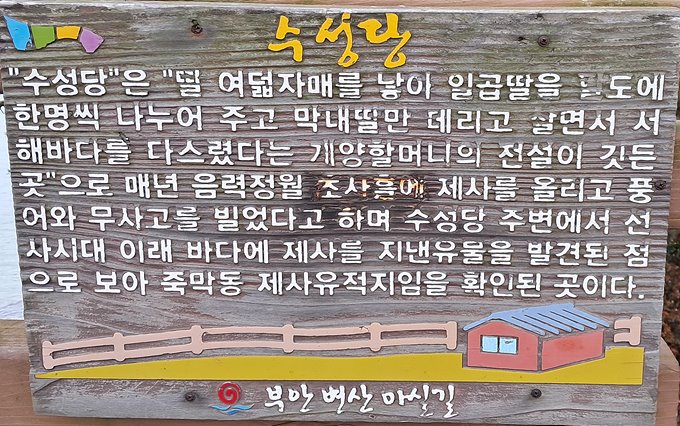 수성당
"수성당"은 "딸 여덟자매를 낳아 일곱딸을 도에
한명씩 나누어 주고 막내딸만 데리고 살면서 서
해바다를 다스렸다는 개양할머니의 전설이 깃든
곳"으로 매년 음력정월 제사를 올리고 풍
어와 무사고를 빌었다고 하며 수성당 주변에서 선
사시대 이래 바다에 제사를 지낸유물을 발견된 점
으로 보아 죽막동 제사유적지임을 확인된 곳이다.
부안 변산 마실길